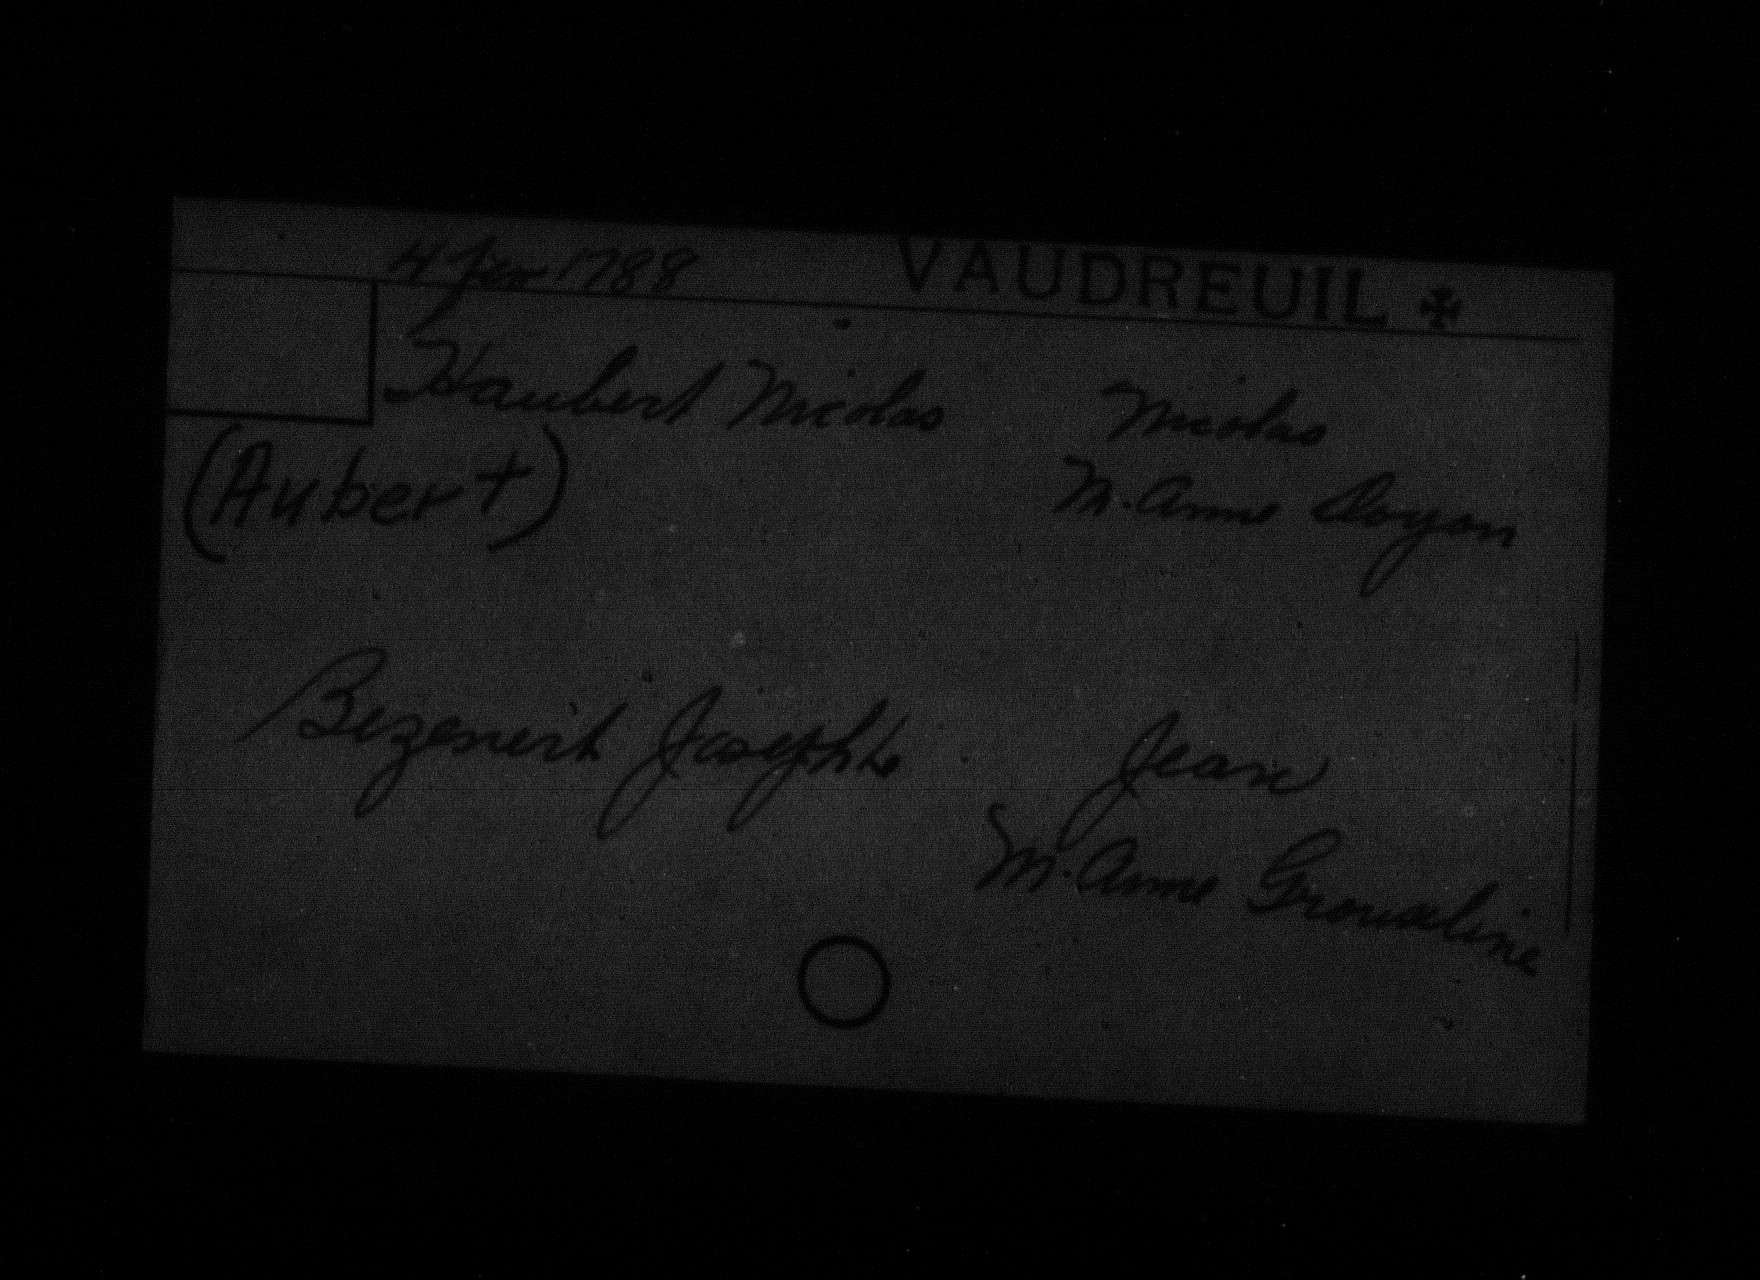 4 fev 1788 VAUDREUIL ✠
Haubert Nicolas Nicolas
(Aubert) M. Anne Doyon
Bezeneth Josephte Jean
M. Anne